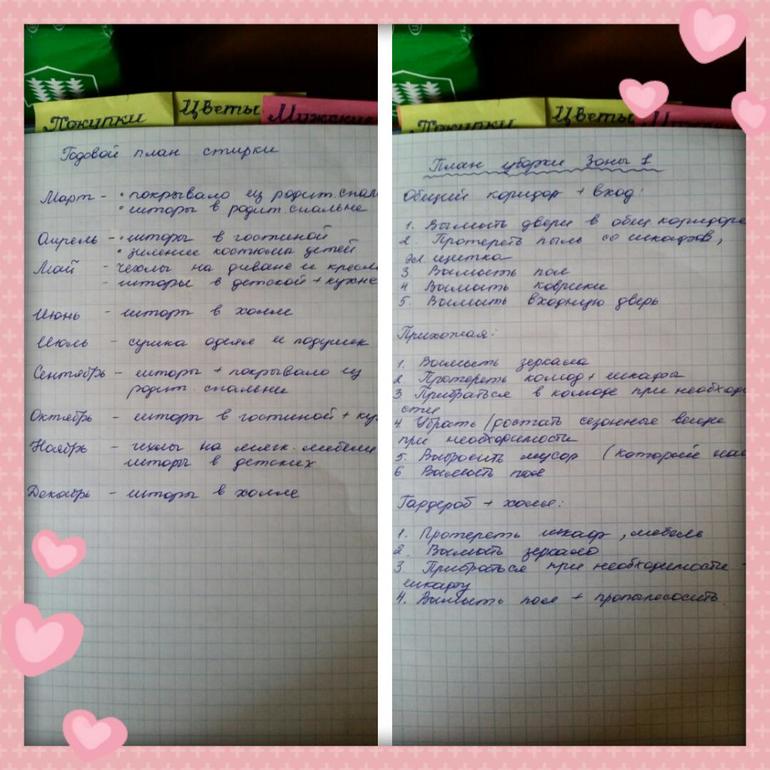 Покупки
Цветы
Годовой план стирки
Март - • покрывало из родит. спал
• шторы в родит. спальне
Апрель - • шторы в гостиной
• зимние костюмы детей
Май - чехлы на диване и кресл
- шторы в детской + кухне
Июнь - шторы в холле
Июль - сушка одеял и подушек
Сентябрь - шторы + покрывало из
родит. спальни
Октябрь - шторы в гостиной + кух
Ноябрь - чехлы на мягк. мебели
шторы в детских
Декабрь - шторы в холле
Покупки
Цветы
План уборки Зоны 1
Общий коридор + вход:
1. Вымыть двери в общ. коридоре
2. Протереть пыль со шкафов,
эл щитка
3 Вымыть пол
4 Вымыть коврики
5. Вымыть входную дверь
Прихожая:
1. Вымыть зеркала
2 Протереть комод + шкафы
3 Прибраться в комоде при необходи
сти
4 Убрать/достать сезонные вещи
при необходимости
5. Выбросить мусор (который
6 Вымыть пол
Гардероб + холл:
1. Протереть шкаф, мебель
2. Вымыть зеркало
3. Прибраться при необходимости
шкафу
4. Вымыть пол + пропылесосить